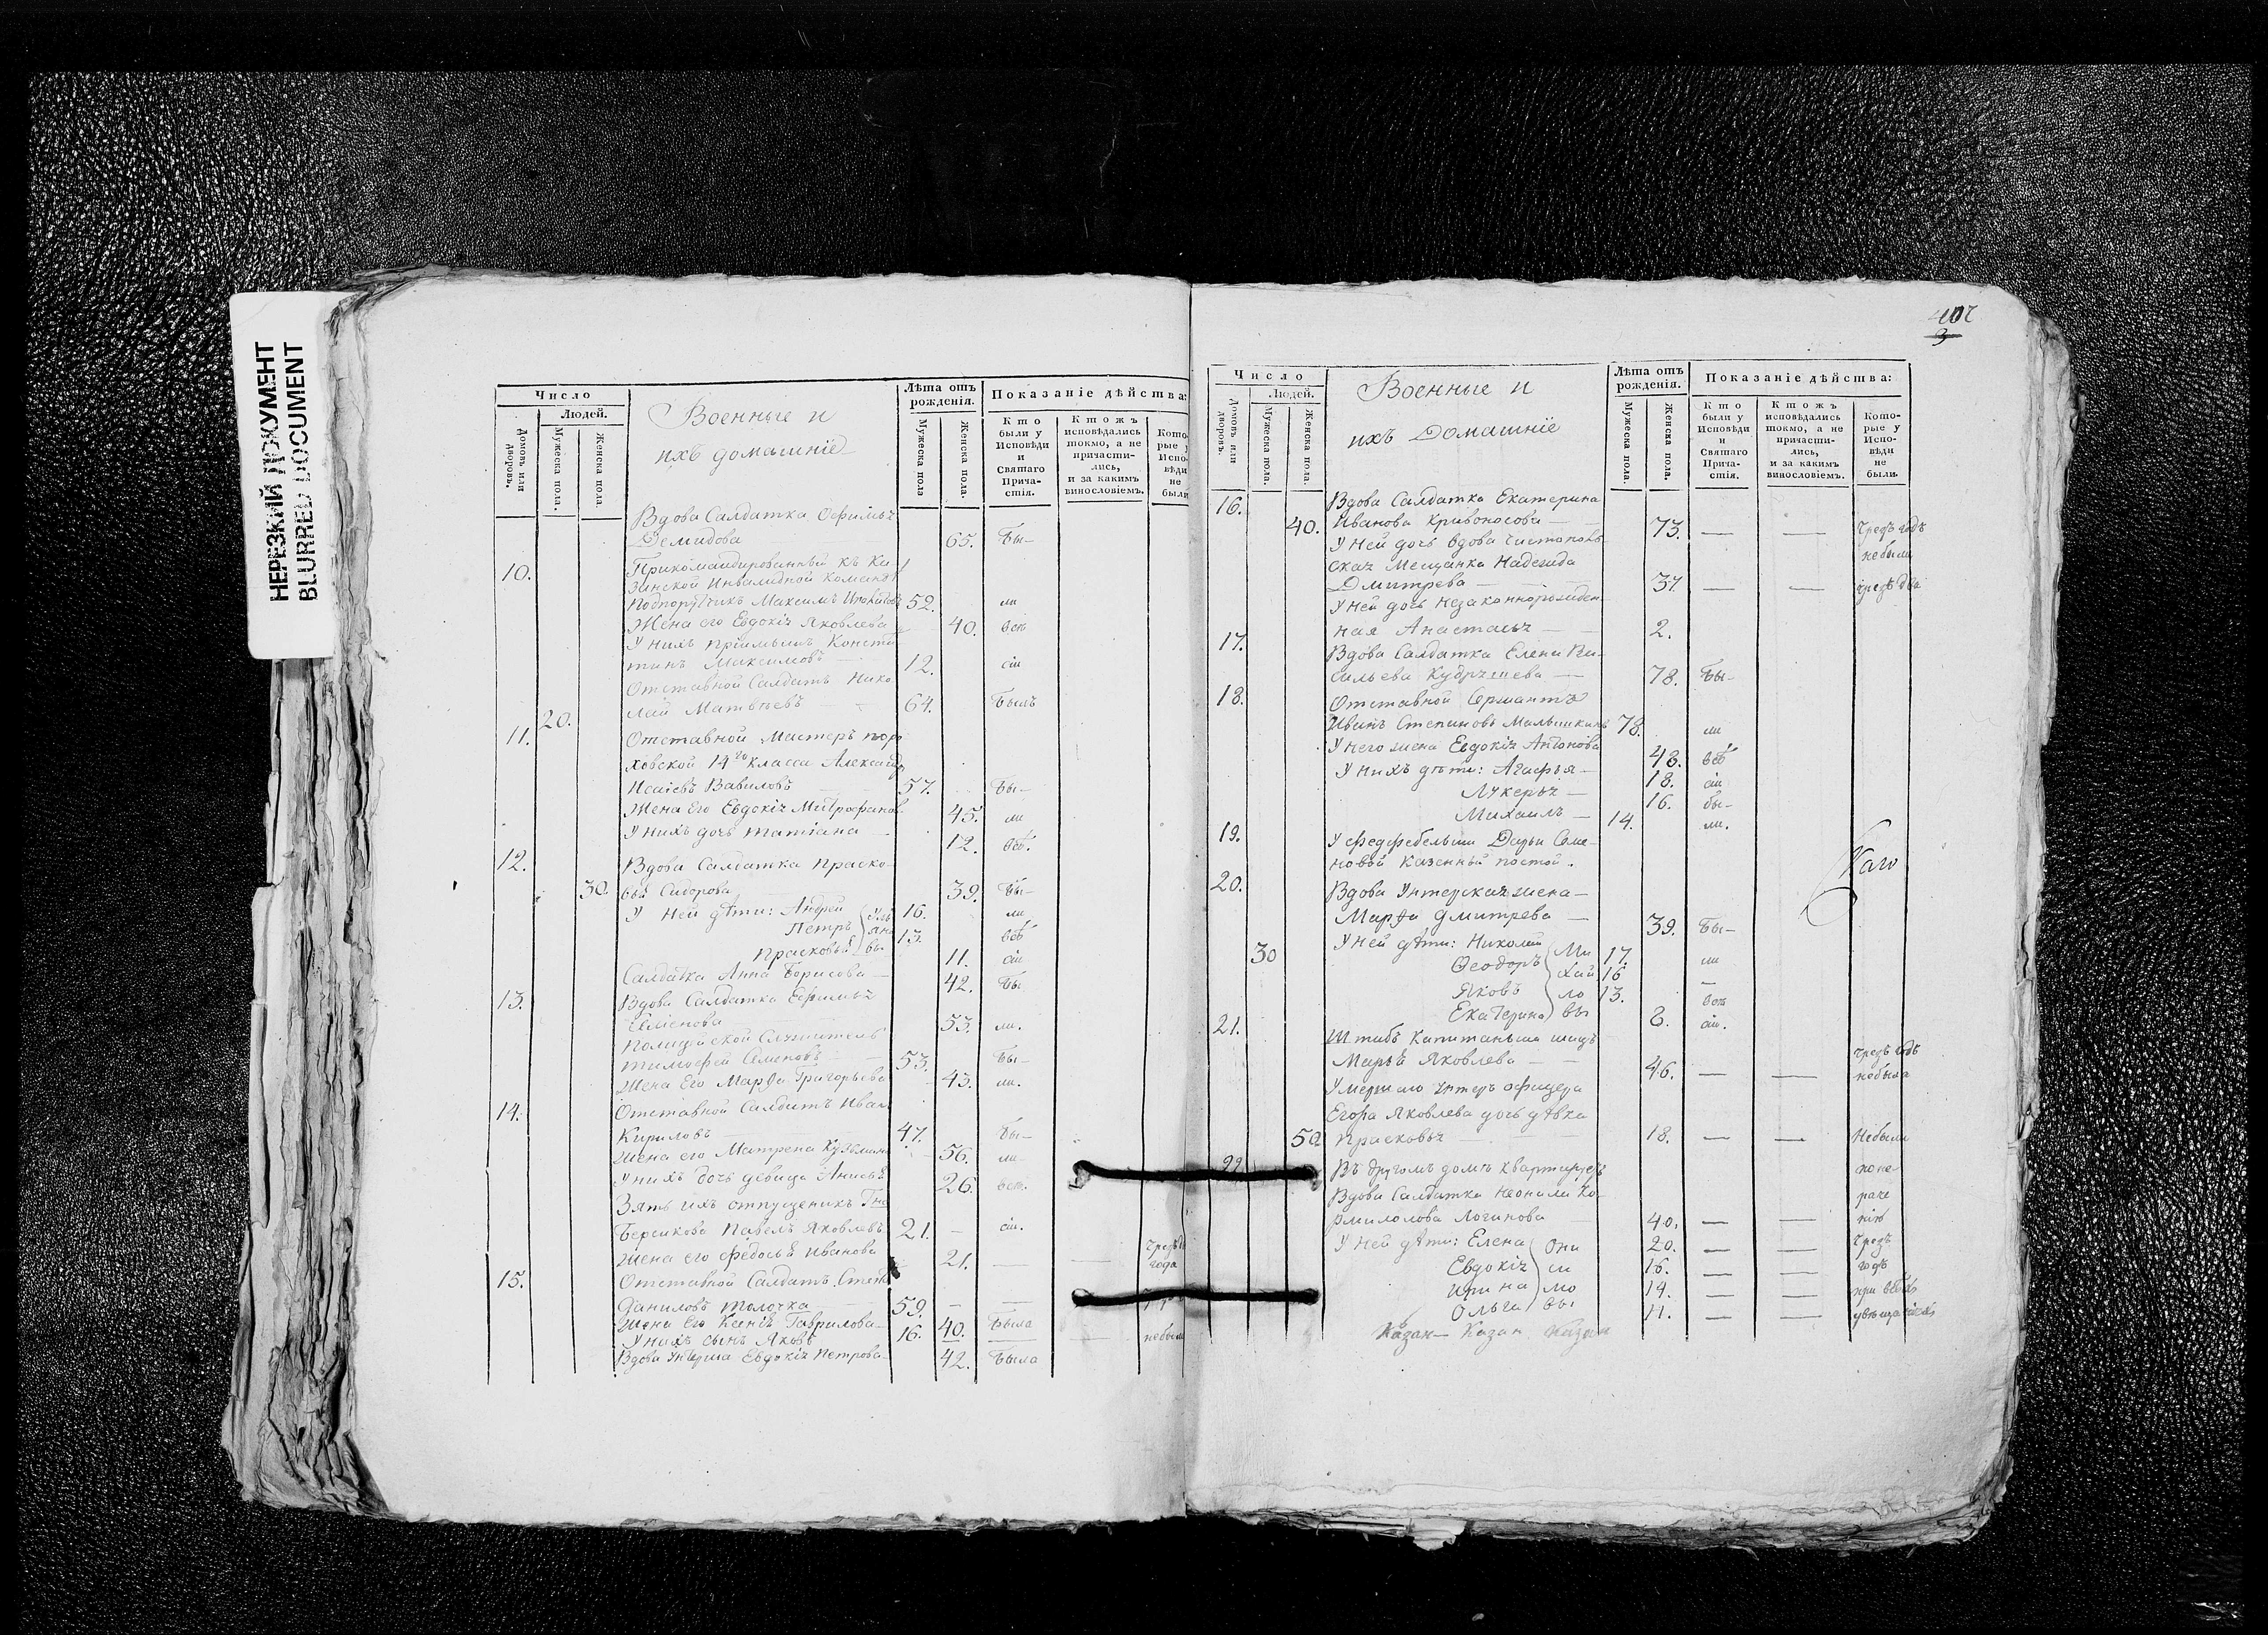 НЕРЕЗКИЙ ДОКУМЕНТ
BLURRED DOCUMENT
Число
Людей.
Домовъ или дворовъ.
Мужеска пола.
Женска пола.
Военные и
ихъ домашніе
Лѣта отъ рожденія.
Мужеска пола
Женска пола.
Показаніе дѣйства:
Кто были у Исповѣди и Святаго Прича-стія.
Ктожъ исповѣдались токмо, а не причасти-лись, и за какимъ винословіемъ.
Кото-рые у Испо-вѣди не были
Вдова Салдатка Офимья
Демидова 65. Бы-
10. Прикомандированный къ Ка-
занской Инвалидной Команд
Подпоручикъ Максимъ 52. ли
Жена его Евдокія Яковлева 40. всѣ
У нихъ пріимышъ Конста
тинъ Максимовъ 12. сіи
Отставной Салдатъ Нико
лай Матвѣевъ 64. Былъ
20.
11. Отставной Мастеръ пор
ховской 14го класса Александр
Исаіевъ Вавиловъ 57. Бы-
Жена Его Евдокія Митрофанов 45. ли
У нихъ дочь Татіана 12. всѣ.
12. Вдова Салдатка Праско
30. вья Сидорова 39. Бы-
У ней дѣти: Андрей 16. ли
Петръ 13. всѣ
Прасковья 11. сіи
Салдатка Анна Борисова 42. Бы
13. Вдова Салдатка Ефимья
53. ли.
Полицейской Служитель
Тимофей Семеновъ 53. Бы-
Жена Его Марѳа Григорьева 43. ли.
14. Отставной Салдатъ Иван
Кириловъ 47. Бы-
Жена его Матрена Кузьмина 56. ли
У нихъ дочь девица Анисья 26. всѣ.
Зять ихъ отпущеникъ Гна
Берсикова Павелъ Яковлевъ 21. сіи.
Жена его Федосья Иванова 21.
года
15. Отставной Салдатъ Степа
Даниловъ Толочка 59.
Жена Его Ксенія Гаврилова 40. Была
У нихъ сынъ Яковъ 16. небылъ
Вдова Унтерша Евдокія Петрова 42. Была
402
3
Число
Людей.
Домовъ или дворовъ.
Мужеска пола.
Женска пола.
Военные и
ихъ Домашніе
Лѣта отъ рожденія.
Мужеска пола.
Женска пола.
Показаніе дѣйства:
Кто были у Исповѣди и Святаго Прича-стія.
Ктожъ исповѣдались токмо, а не причасти-лись, и за какимъ винословіемъ.
Кото-рые у Испо-вѣди не были.
16. Вдова Салдатка Екатерина
40. Иванова Кривоносова 73. — — Чрезъ годъ
У ней дочь вдова Чистополь небыли
ская Мещанка Надежда
Дмитрева 37. — — чрезъ два
У ней дочь незаконнорожден
ная Анастасья 2.
17. Вдова Салдатка Елена Ва-
сильева 78. Бы-
18. Отставной Сержантъ
Иванъ Степановъ Малышкинъ 78. ли
У него жена Евдокія Антонова 48. всѣ
У нихъ дѣти: Агафья 18. сіи
Лукерья 16. бы-
Михаилъ 14. ли.
19. У федфебельши Дарьи Семе-
новой Казенный постой.
Каго
20. Вдова Унтерская жена
Марѳа Дмитрева 39. Бы-
30 У ней дѣти: Николай Ми 17. ли
Ѳеодоръ хай 16 —
Яковъ ло 13. всѣ
Екатерина вы 8. сіи.
21. Штабъ Капитаньша
Марья Яковлева 46. — — чрезъ годъ небыла
Умершаго Унтеръ офицера
Егора Яковлева дочь дѣвка
50. Прасковья 18. — — Небыли
22. Въ другомъ домѣ квартируетъ по не-
Вдова Салдатка Неонила Ко- раче
рмилолова Логинова 40. — — нію
У ней дѣти: Елена Они 20. — — Чрезъ
Евдокія си 16. — — годъ
Ирина мо 14. — —
Ольга вы 11. — —
Казан- Казан Казан